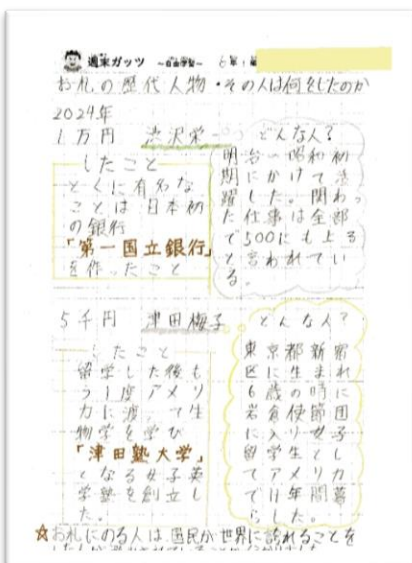 週末ガッツ ～自由学習～ 6年1組
お札の歴代人物・その人は何をしたのか
2024年
1万円 渋沢栄一
したこと
とくに有名な
ことは日本初
の銀行
「第一国立銀行」
を作ったこと
どんな人?
明治〜昭和初
期にかけて活
躍した。関わっ
た仕事は全部
で500にも上る
と言われてい
る。
5千円 津田梅子
したこと
留学した後も
う1度アメリ
カに渡って生
物学を学び
「津田塾大学」
となる女子英
学塾を創立し
た。
どんな人?
東京都新宿
区に生まれ
6歳の時に
岩倉使節団
に入り女子
留学生とし
てアメリカ
で11年間暮
らした。
☆お札にのる人は国民が世界に誇れることを